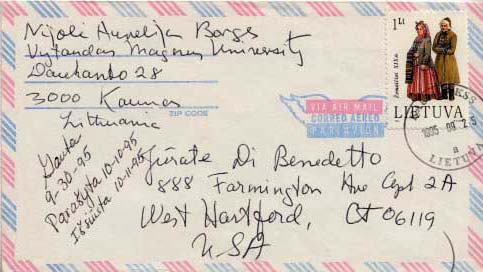 Nijolė Aurelija Borges
Vytandas Magnus University
Daukanto 28
3000 Kaunas
Lithuania
ZIP CODE
VIA AIR MAIL
CORREO AEREO
PAR AVION
1 Lt
LIETUVA
LIETUVA
Gauta
9-30-95
Parašyta 10-10-95
Išsiųsta 10-11-95
Jūratė Di Benedetto
888 Farmington Ave Apt 2A
West Hartford, CT 06119
USA